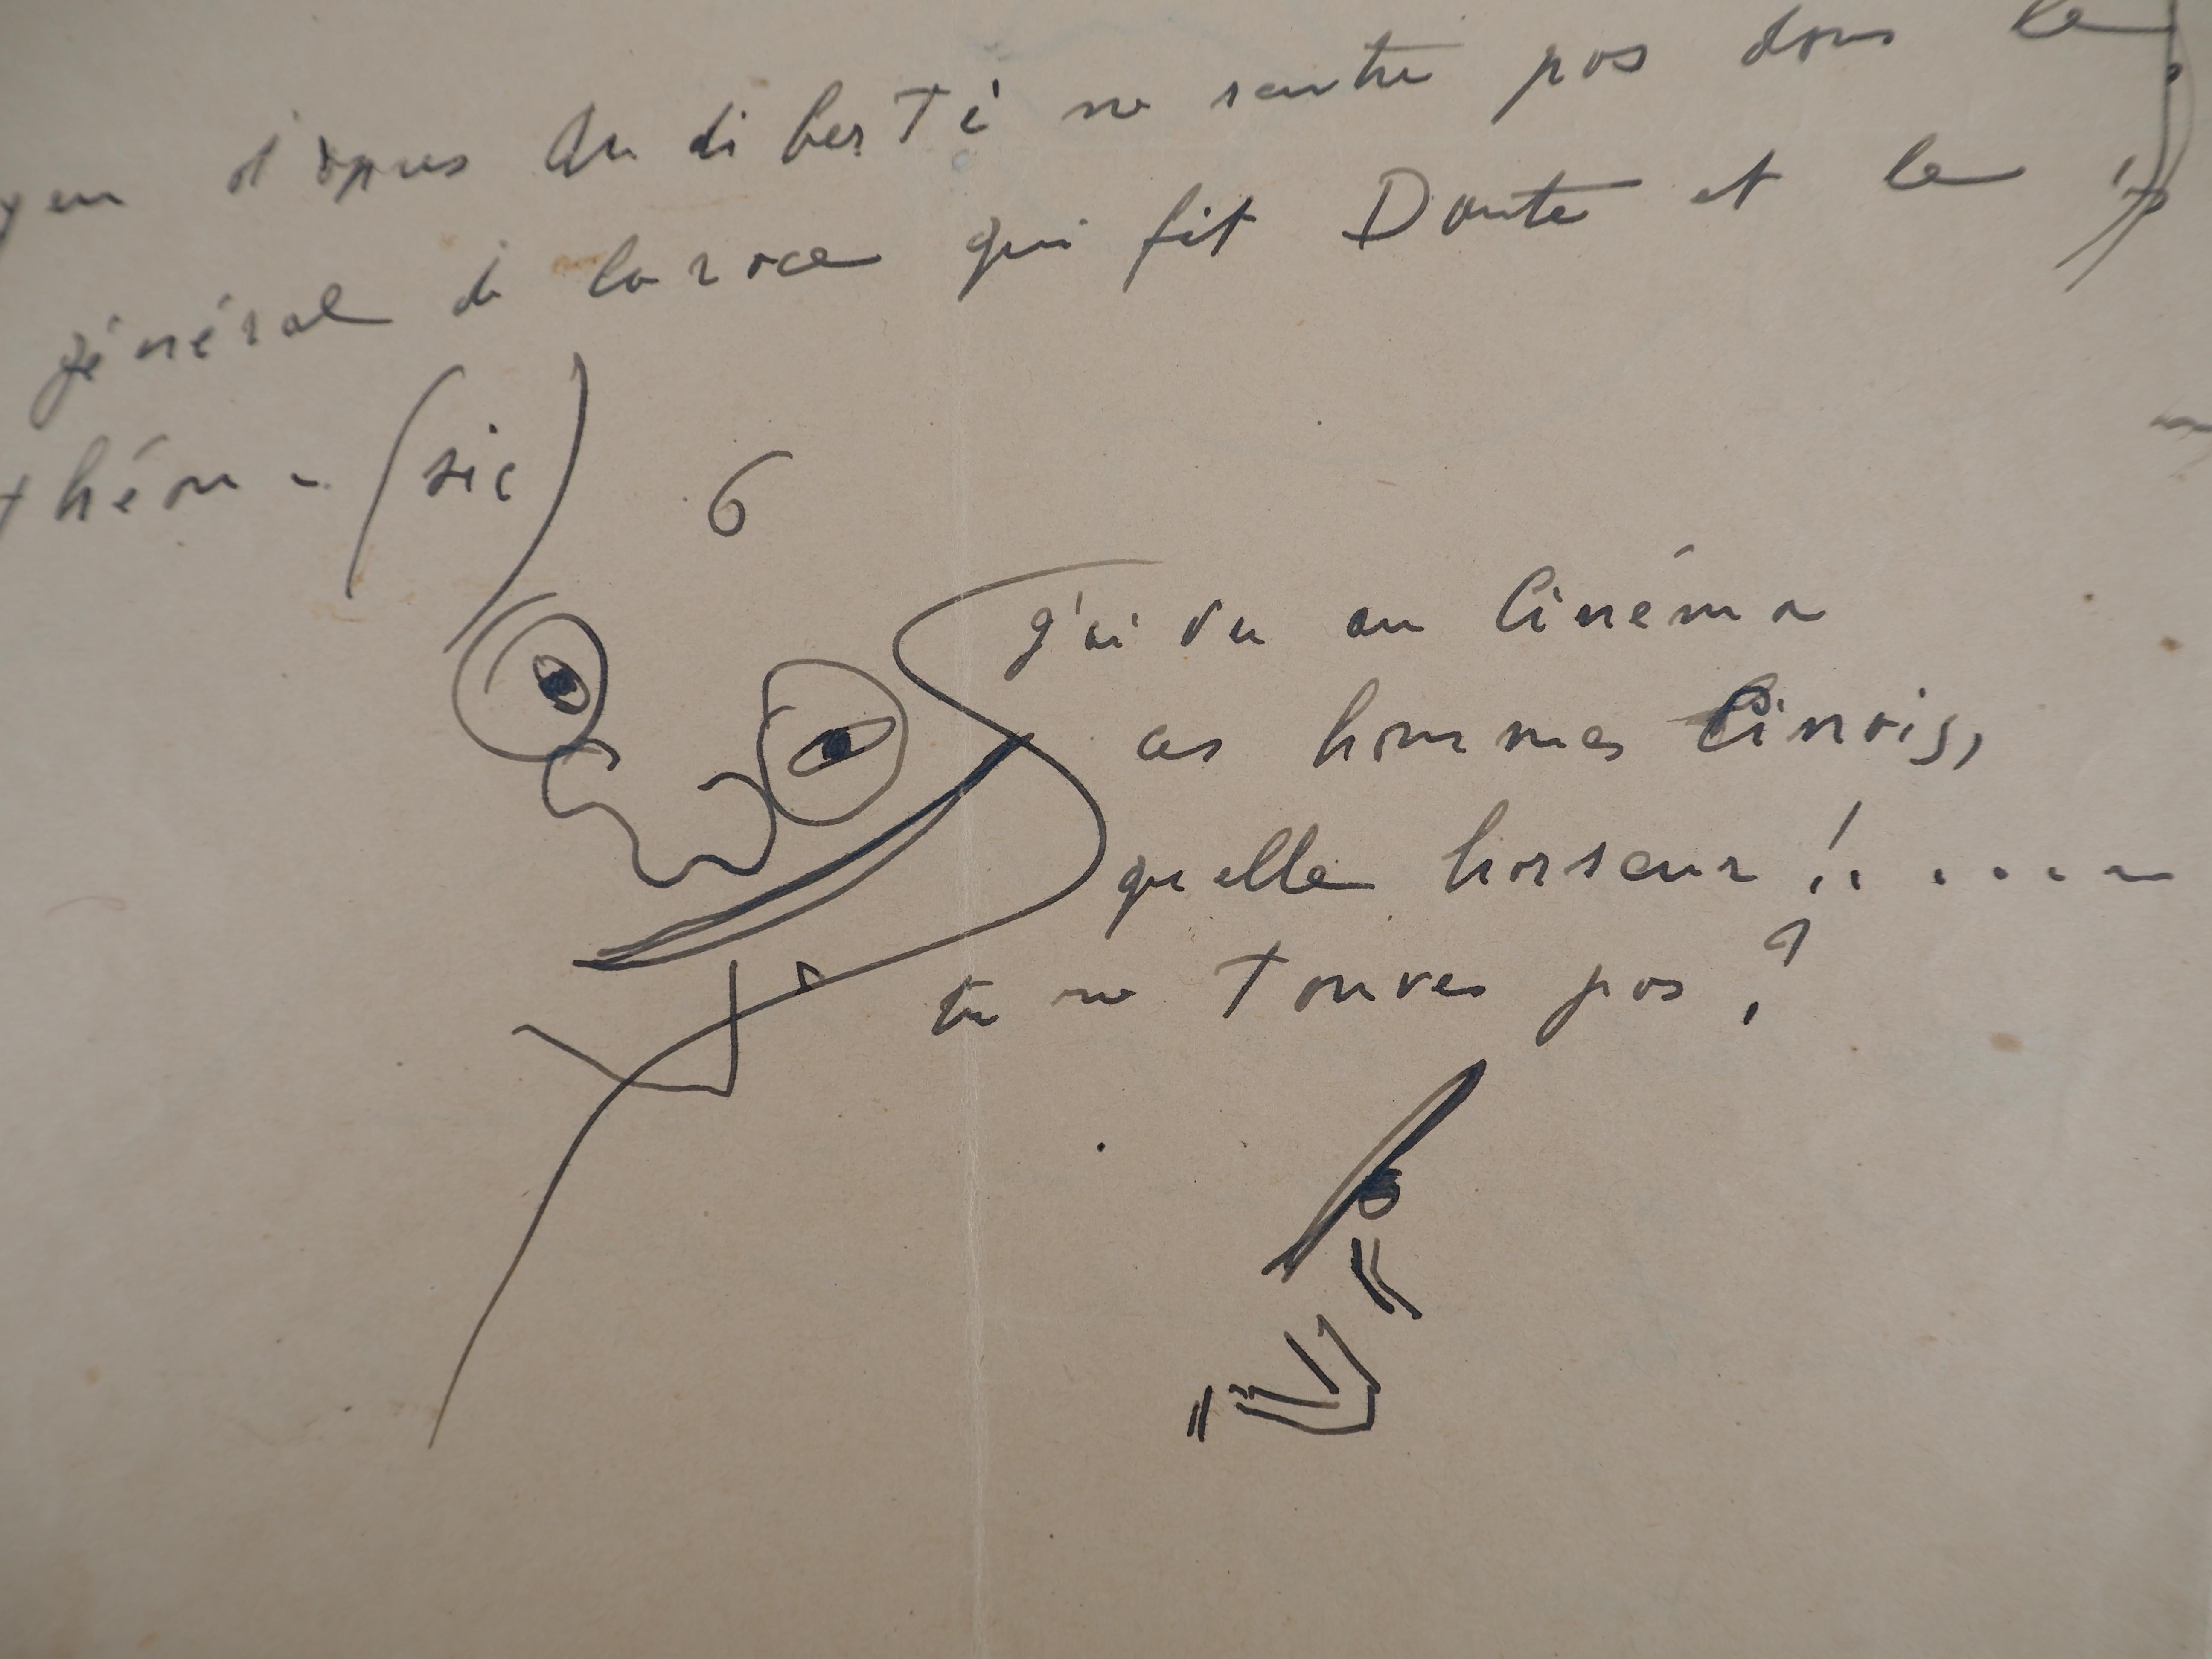 d'après Audiberti ne rentre pas dans le
général de la race qui fit Dante et le
théon - (sic)
6
J'ai vu au Cinéma
ces hommes Cinois,
quelle horreur !.....
tu ne touves pas ?